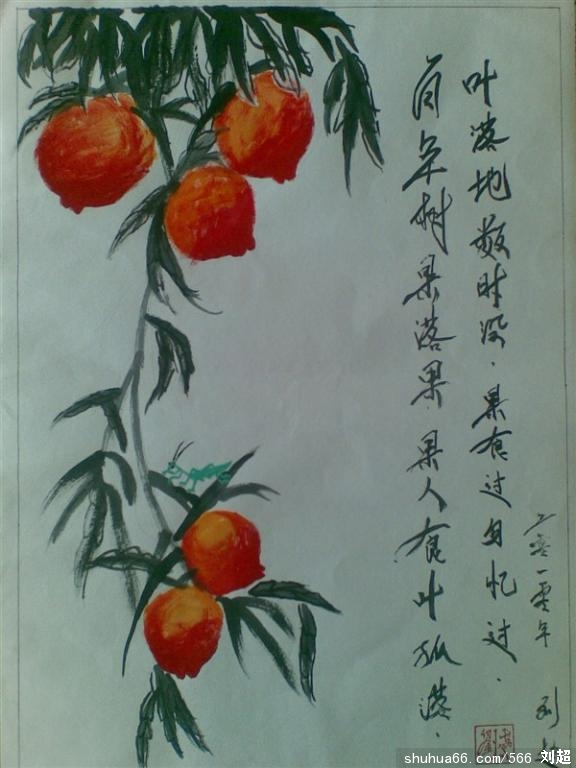 百年树果落果.果人食叶孤落.
叶落地散时没.果食过自忆过.
二零一零年 刘超
shuhua66.com/566 刘超